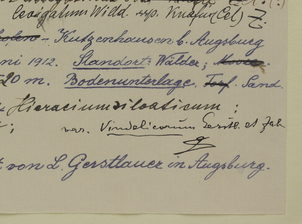 Willd. ssp.
Kutzenhausen b. Augsburg
ni 1912. Standort: Wälder,
20 m. Bodenunterlage, Torf. Sand.
Hieracium silvaticum:
var. Vindelicorum
von L. Gerstlauer in Augsburg.